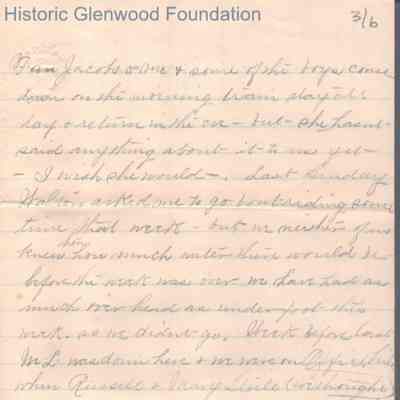 Historic Glenwood Foundation
3/6
Jacobs & me & some of the boys come
down on the morning train stay all
day & return in the eve - but - she hasn't
said anything about it to me yet -
- I wish she would -. Last Sunday
Walton asked me to go boat riding some
time that week - but neither of us
knew how much water there would be
before the week was over we have had as
much over head as under foot this
week. so we didn't go. Week before last
M L was down here & we were on
when Russell & Mary